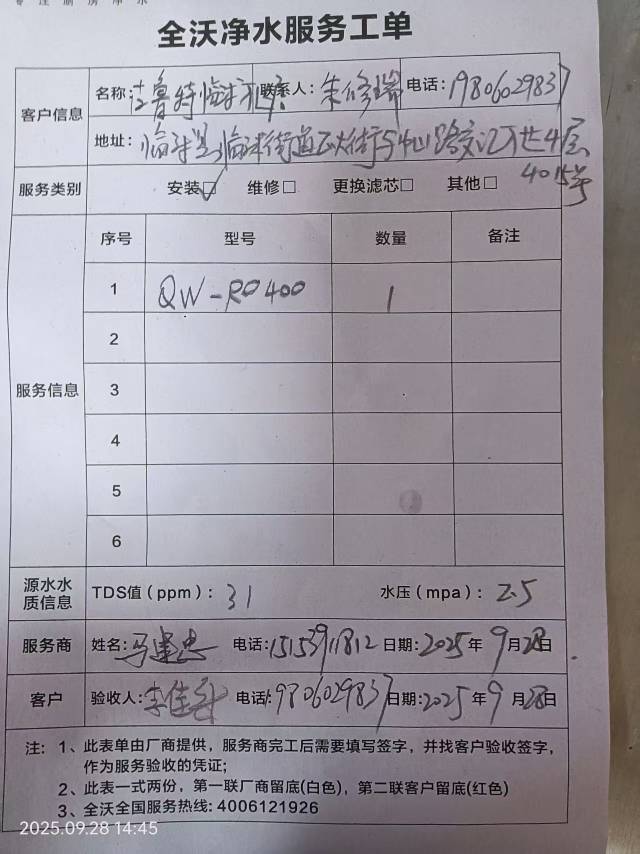 专注厨房净水
全沃净水服务工单
客户信息
名称: 鲁特临 联系人: 朱修瑞 电话: 19806029837
地址: 临 临沭街道 大街与中山路交汇 4层
4015号
服务类别 安装☑ 维修□ 更换滤芯□ 其他□
序号 型号 数量 备注
服务信息
1 QW-RO400 1
2
3
4
5
6
源水水质信息 TDS值(ppm): 31 水压(mpa): 2.5
服务商 姓名: 马建忠 电话: 15153911812 日期: 2025年9月28日
客户 验收人: 李佳 电话: 19806029837 日期: 2025年9月28日
注: 1、此表单由厂商提供，服务商完工后需要填写签字，并找客户验收签字，
作为服务验收的凭证;
2、此表一式两份，第一联厂商留底(白色)，第二联客户留底(红色)
3、全沃全国服务热线: 4006121926
2025.09.28 14:45